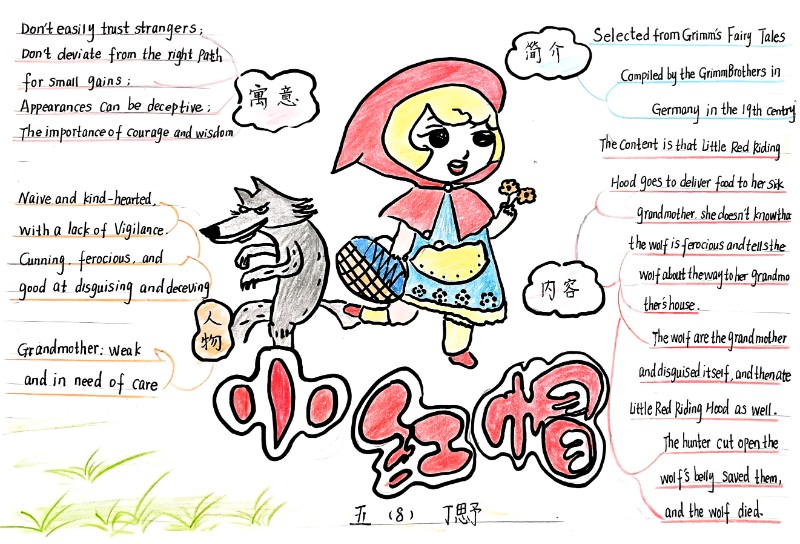 Don't easily trust strangers;
Don't deviate from the right path
for small gains;
Appearances can be deceptive;
The importance of courage and wisdom
寓意
Naive and kind-hearted,
with a lack of Vigilance.
Cunning, ferocious, and
good at disguising and deceving
Grandmother: weak
and in need of care
人物
简介
Selected from Grimm's Fairy Tales
Compiled by the GrimmBrothers in
Germany in the 19th centry
内容
The content is that Little Red Riding
Hood goes to deliver food to her sik
grandmother. she doesn't knowtha
the wolf is ferocious and tells the
wolf about the way to her grandmo
thers house.
The wolf are the grandmother
and disguised itself, and then ate
Little Red Riding Hood as well.
The hunter cut open the
wolf's belly saved them,
and the wolf died.
小红帽
五（8）丁思予